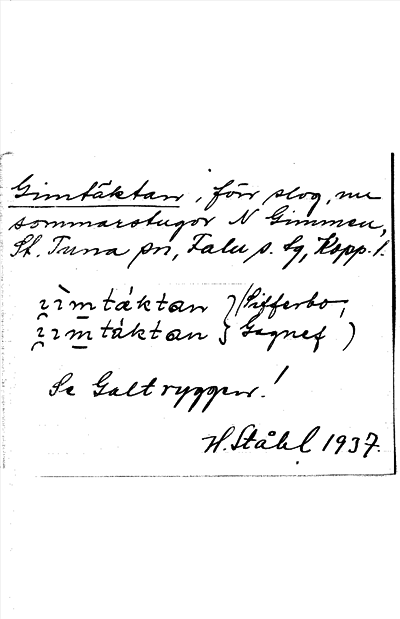 Gimtäktan, förr slog, nu
sommarstugor N Gimmen,
St. Tuna sn, Falu s. lg, Kopp. l.
ɪ̀m̲táktan } (Sifferbo,
ɪ̯ɪ̀m̲táktan } Gagnef )
Se Galtryggen!
H. Ståhl 1937.